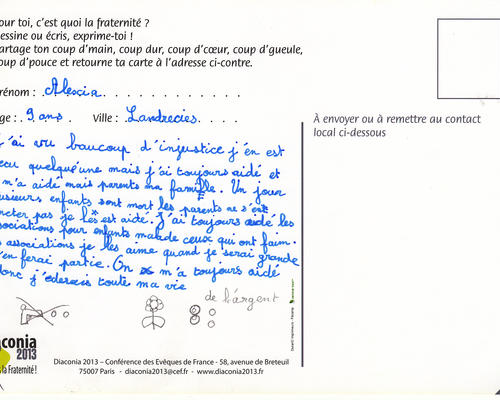 our toi, c'est quoi la fraternité ?
essine ou écris, exprime-toi !
artage ton coup d'main, coup dur, coup d'cœur, coup d'gueule,
oup d'pouce et retourne ta carte à l'adresse ci-contre.
rénom : Alexia
ge : 9 ans. Ville : Landrecies
À envoyer ou à remettre au contact
local ci-dessous
j'ai vu beaucoup d'injustice j'en est
ecu quelqu'une mais j'ai toujours aidé et
m'a aidé mais parents ma famille. Un jour
usieurs enfants sont mort les parents ne s'en
pas je les est aidé. J'ai toujours aidé les
sociations pour enfants malade ceux qui ont faim.
s associations je les aime quand je serai grande
'en ferai partie. On m'a toujours aidé
donc j'ederais toute ma vie
de l'argent
aconia
2013
la Fraternité !
Diaconia 2013 – Conférence des Evêques de France - 58, avenue de Breteuil
75007 Paris - diaconia2013@cef.fr - www.diaconia2013.fr